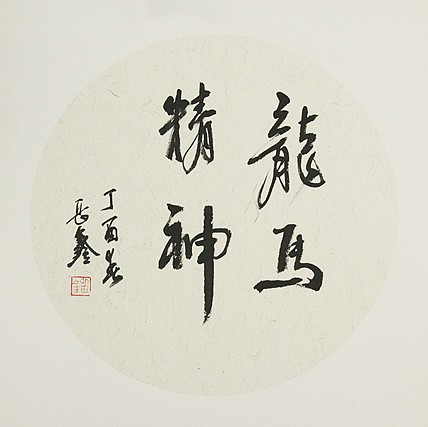 龍馬
精神
丁酉春